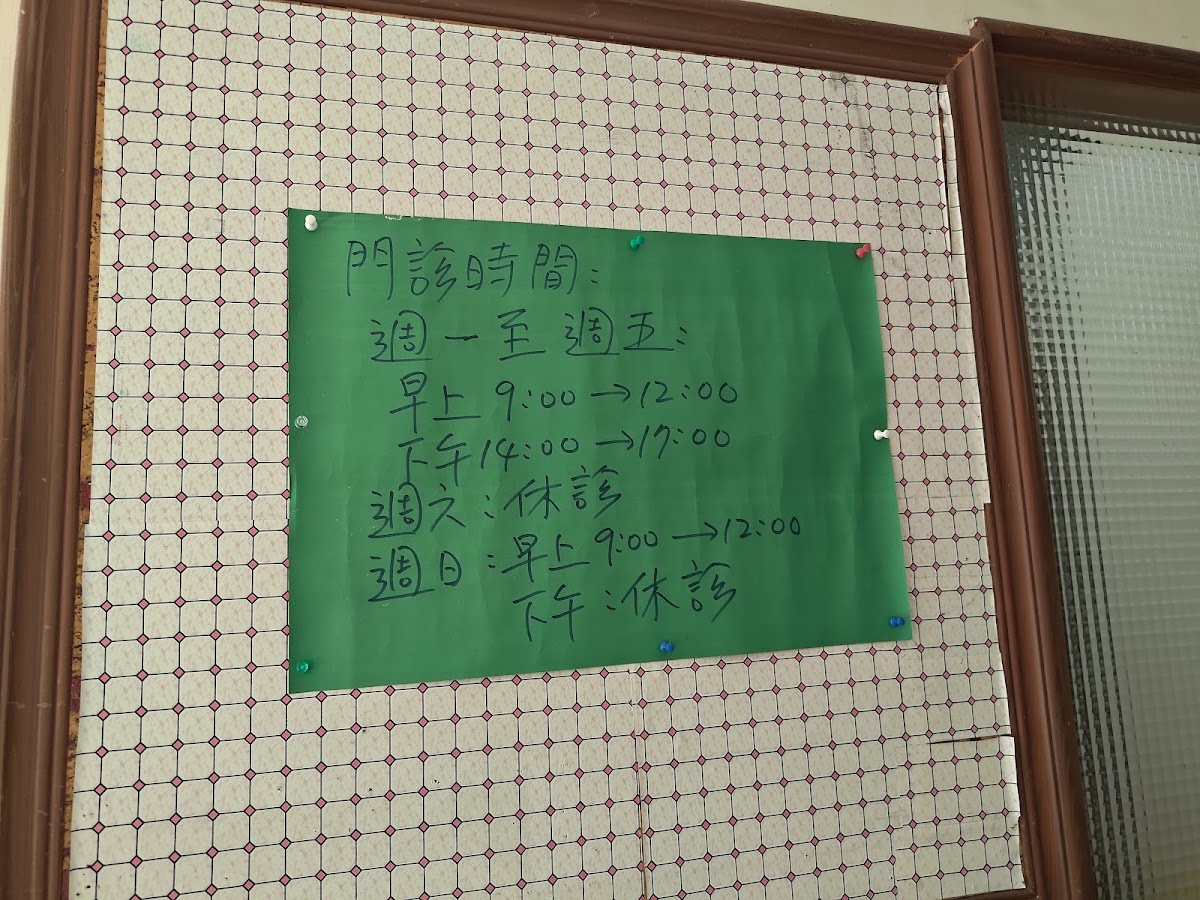 門診時間:
週一至週五:
早上 9:00→12:00
下午14:00→17:00
週六:休診
週日:早上 9:00→12:00
下午:休診